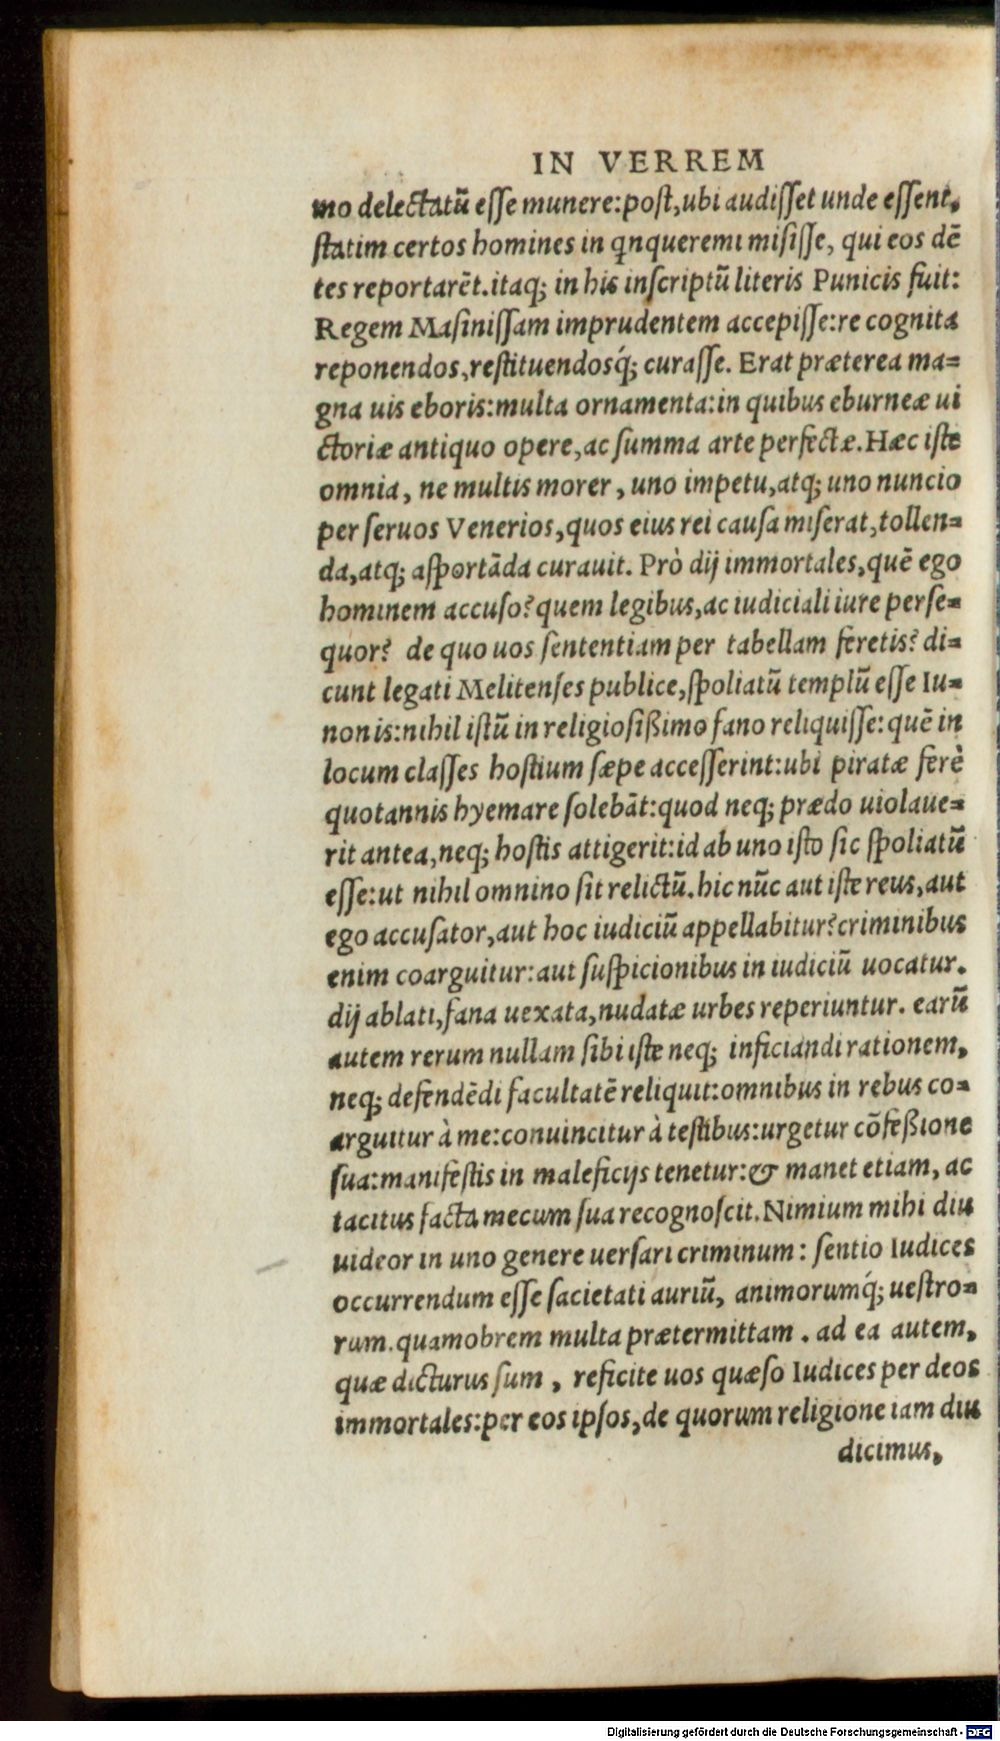 IN VERREM
mo delectatũ eſſe munere:poſt,ubi audiſſet unde eſſent,
ſtatim certos homines in qnqueremi miſiſſe, qui eos dẽ
tes reportarẽt.itaq; in his inſcriptũ literis Punicis fuit:
Regem Maſiniſſam imprudentem accepiſſe:re cognita
reponendos,reſtituendosq́; curaſſe. Erat præterea ma=
gna uis eboris:multa ornamenta:in quibus eburneæ ui
ctoriæ antiquo opere,ac ſumma arte perfectæ.Hæc iſte
omnia, ne multis morer, uno impetu,atq; uno nuncio
per ſeruos Venerios,quos eius rei cauſa miſerat,tollen=
da,atq; aſportãda curauit. Prò dij immortales,quẽ ego
hominem accuſo?quem legibus,ac iudiciali iure perſe=
quor? de quo uos ſententiam per tabellam feretis? di=
cunt legati Melitenſes publice,ſpoliatũ templũ eſſe Iu=
nonis:nihil iſtũ in religioſißimo fano reliquiſſe:quẽ in
locum claſſes hoſtium ſæpe acceſſerint:ubi piratæ ferè
quotannis hyemare ſolebãt:quod neq; prædo uiolaue=
rit antea,neq; hoſtis attigerit:id ab uno iſto ſic ſpoliatũ
eſſe:ut nihil omnino ſit relictũ.hic nũc aut iſte reus,aut
ego accuſator,aut hoc iudiciũ appellabitur?criminibus
enim coarguitur:aut ſuſpicionibus in iudiciũ uocatur.
dij ablati,fana uexata,nudatæ urbes reperiuntur. earũ
autem rerum nullam ſibi iſte neq; inficiandi rationem,
neq; defendẽdi facultatẽ reliquit:omnibus in rebus co=
arguitur à me:conuincitur à teſtibus:urgetur cõfeßione
ſua:manifeſtis in maleficijs tenetur:& manet etiam, ac
tacitus facta mecum ſua recognoſcit.Nimium mihi diu
uideor in uno genere uerſari criminum: ſentio Iudices
occurrendum eſſe ſacietati auriũ, animorumq́; ueſtro=
rum.quamobrem multa prætermittam. ad ea autem,
quæ dicturus ſum, reficite uos quæſo Iudices per deos
immortales:per eos ipſos,de quorum religione iam diu
dicimus,
Digitalisierung gefördert durch die Deutsche Forschungsgemeinschaft - DFG